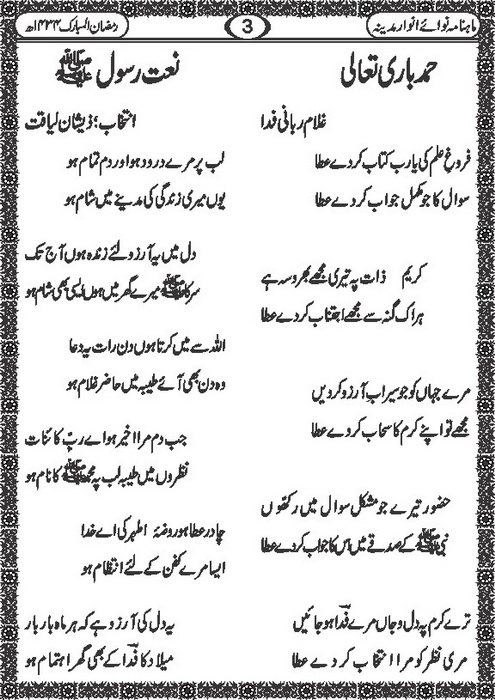 ماہنامہ نوائے انوار مدینہ
3
رمضان المبارک ۱۴۳۴ھ
حمد باری تعالی
غلام ربانی فدا
فروغِ علم کی یا رب کتاب کر دے عطا
سوال کا جو مکمل جواب کر دے عطا
کریم ذات پہ تیری مجھے بھروسہ ہے
ہر اک گنہ سے مجھے اجتناب کر دے عطا
مرے جہاں کو جو سیراب آرزو کر دیں
مجھے تو اپنے کرم کا سحاب کر دے عطا
حضور تیرے جو مشکل سوال میں رکھوں
نبی ﷺ کے صدقے میں اس کا جواب کر دے عطا
ترے کرم پہ دل و جاں مرے فدا ہو جائیں
مری نظر کو مرا انتخاب کر دے عطا
نعت رسول ﷺ
انتخاب: ذیشان لیاقت
لب پر مرے درود ہو اور دم تمام ہو
یوں میری زندگی کی مدینے میں شام ہو
دل میں یہ آرزو لئے زندہ ہوں آج تک
سرکار ﷺ میرے گھر میں ہوں ایسی بھی شام ہو
اللہ سے میں کرتا ہوں دن رات یہ دعا
وہ دن بھی آئے طیبہ میں حاضر غلام ہو
جب دم مرا اخیر ہو اے ربِّ کائنات
نظروں میں طیبہ لب پہ محمد ﷺ کا نام ہو
چادر عطا ہو روضۂ اطہر کی اے خدا
ایسا مرے کفن کے لئے انتظام ہو
یہ دل کی آرزو ہے کہ ہر ماہ بار بار
میلاد کا فدا کے بھی گھر اہتمام ہو